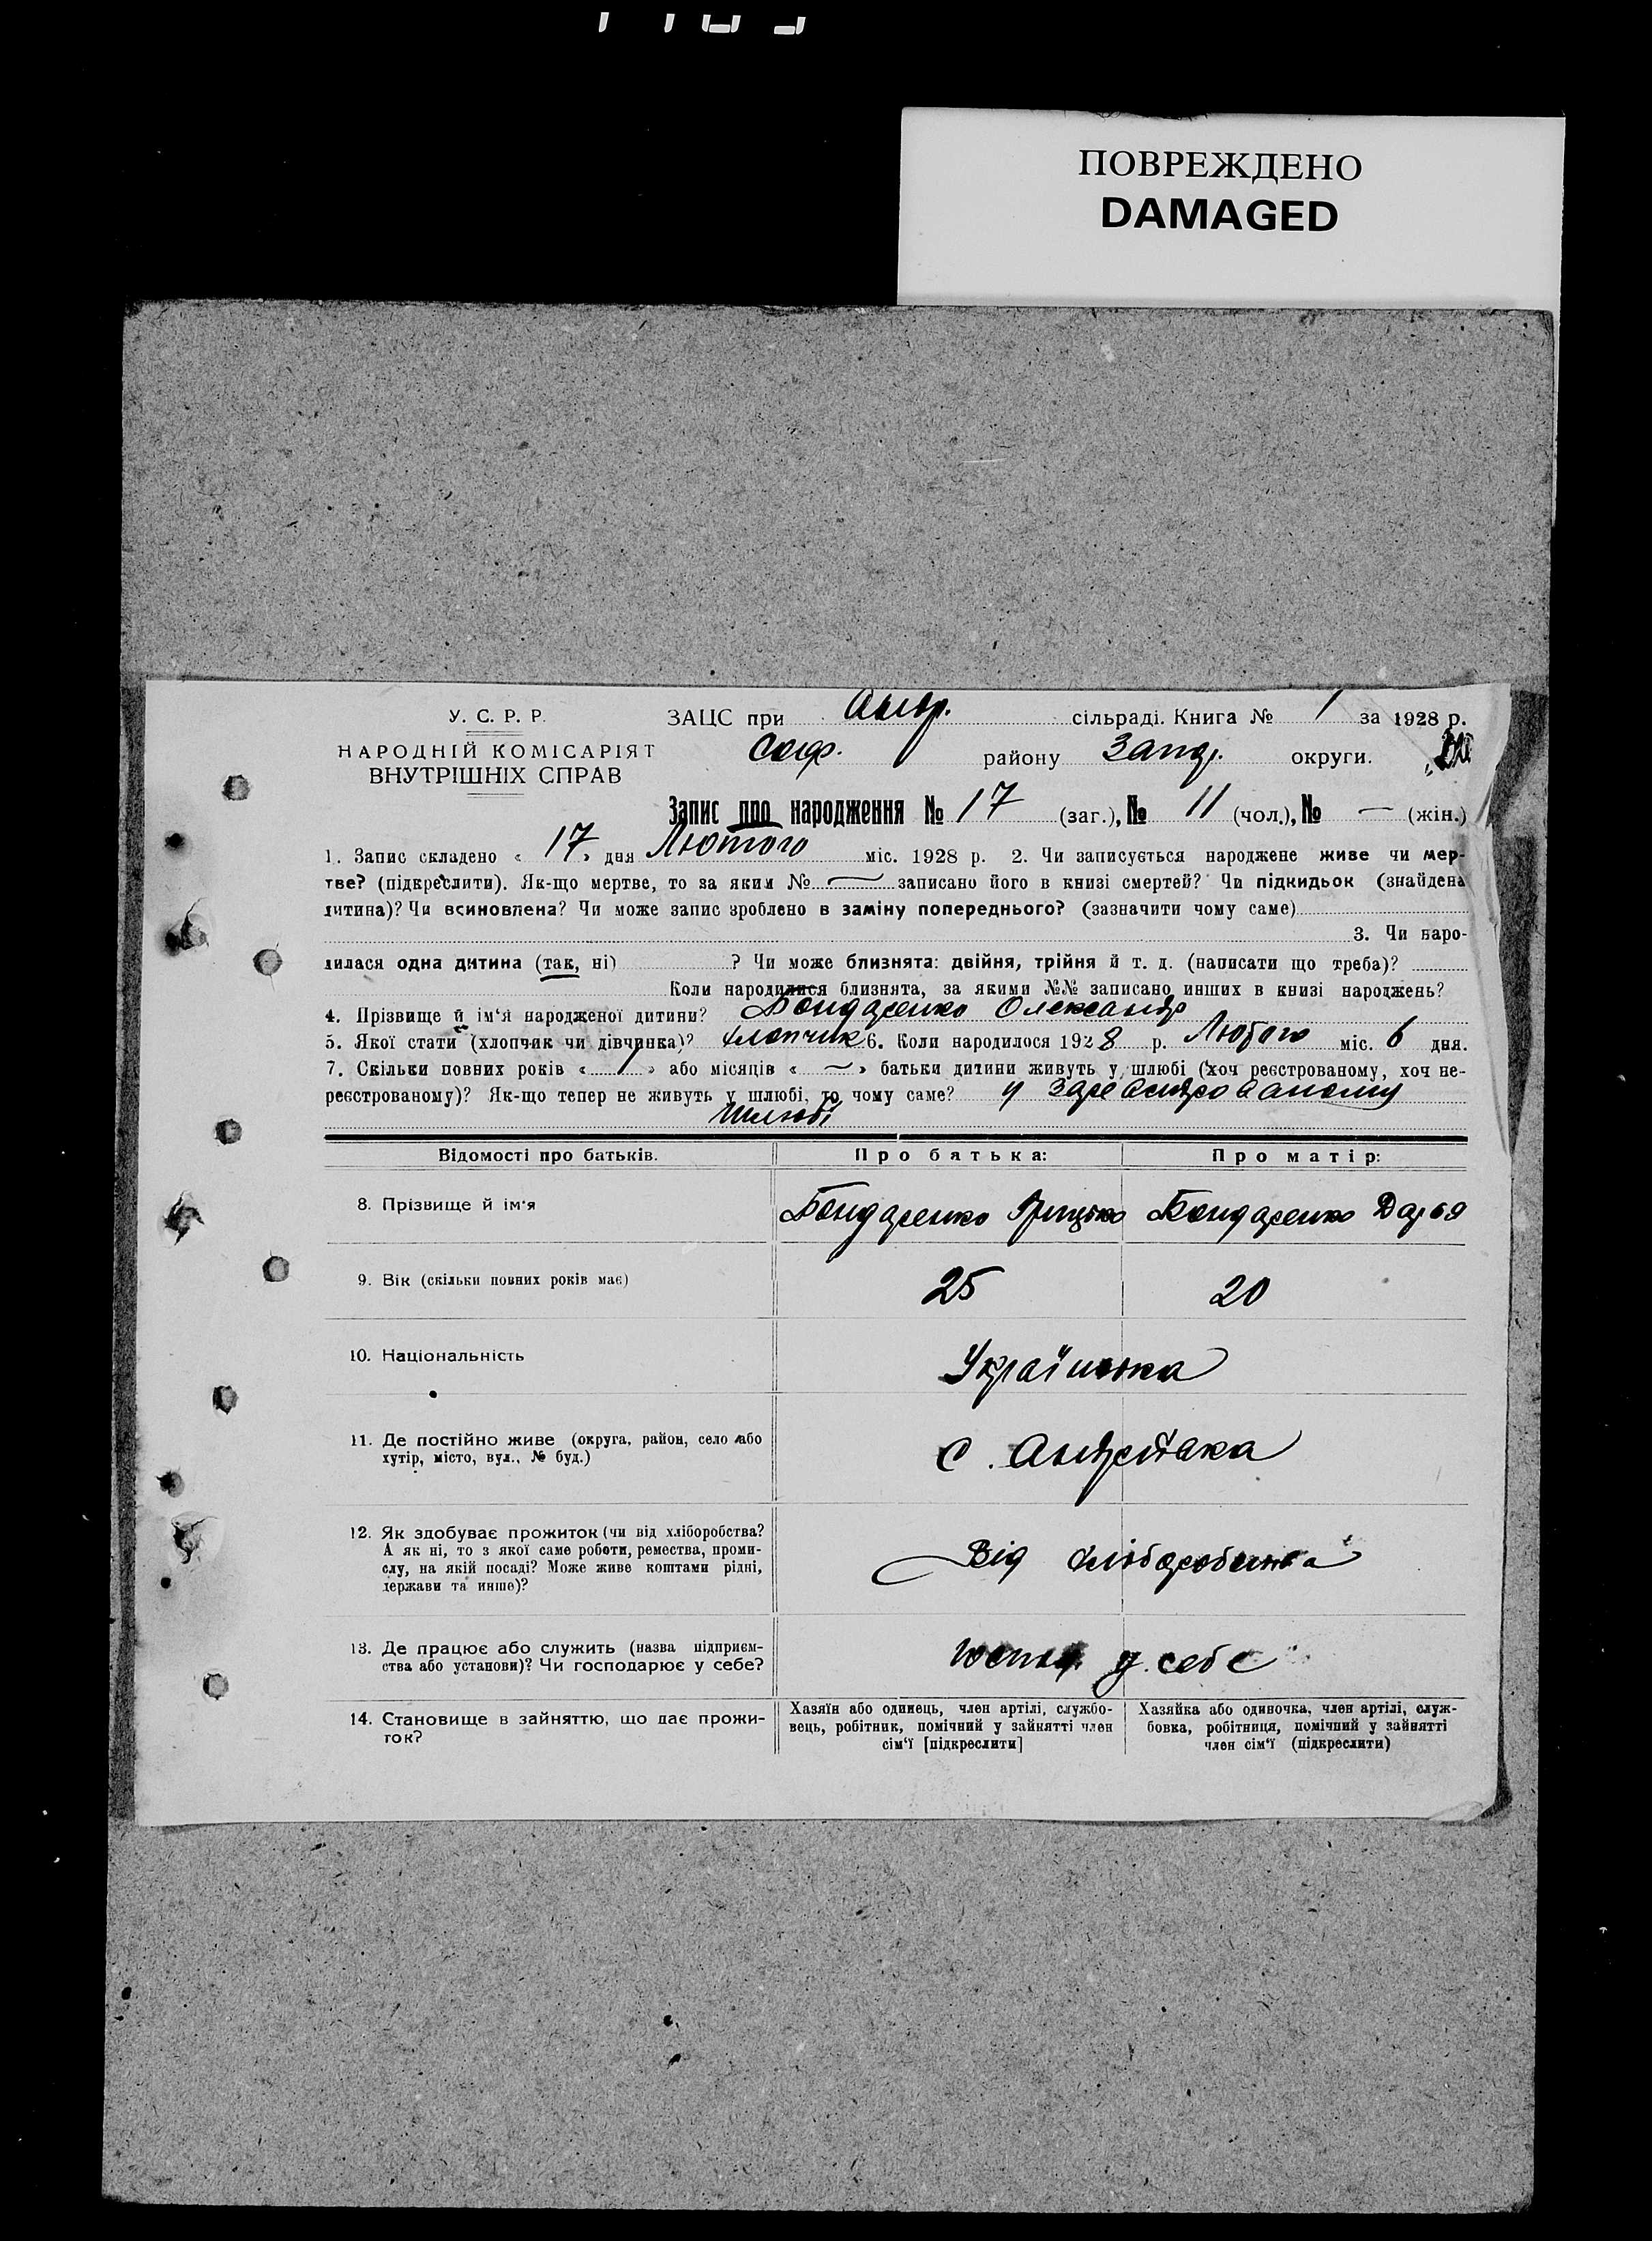 ПОВРЕЖДЕНО
DAMAGED
У. С. Р. Р.
НАРОДНІЙ КОМІСАРІЯТ
ВНУТРІШНІХ СПРАВ
ЗАЦС при Андр. сільраді. Книга № 1 за 1928 р.
Соф. району Запор. округи.
Запис про народження № 17 (заг.), № 11 (чол.), № — (жін.)
1. Запис складено « 17 » дня Лютого міс. 1928 р. 2. Чи записується народжене живе чи мер-
тве? (підкреслити). Як-що мертве, то за яким № — записано його в книзі смертей? Чи підкидьок (знайдена
дитина)? Чи всиновлена? Чи може запис зроблено в заміну попереднього? (зазначити чому саме)
3. Чи наро-
дилася одна дитина (так, ні) ? Чи може близнята: двійня, трійня й т. д. (написати що треба)?
Коли народилися близнята, за якими №№ записано инших в книзі народжень?
4. Прізвище й ім'я народженої дитини? Бондаренко Олександр
5. Якої стати (хлопчик чи дівчинка)? Хлопчик 6. Коли народилося 1928 р. Лютого міс. 6 дня.
7. Скільки повних років « 1 » або місяців « — » батьки дитини живуть у шлюбі (хоч реєстрованому, хоч не-
реєстрованому)? Як-що тепер не живуть у шлюбі, то чому саме? у
Шлюбі
Відомості про батьків. Про батька: Про матір:
8. Прізвище й ім'я Бондаренко Грицько Бондаренко Дарья
9. Вік (скільки повних років має) 25 20
10. Національність Українська
11. Де постійно живе (округа, район, село або
хутір, місто, вул., № буд.) с. Андреівка
12. Як здобуває прожиток (чи від хліборобства?
А як ні, то з якої саме роботи, ремества, проми-
слу, на якій посаді? Може живе коштами рідні,
держави та инше)? Від хліборобства
13. Де працює або служить (назва підприєм-
ства або установи)? Чи господарює у себе? у себе
14. Становище в зайняттю, що дає прожи-
ток?
Хазяїн або одинець, член артілі, службо-
вець, робітник, помічний у зайнятті член
сім'ї [підкреслити]
Хазяйка або одиночка, член артілі, служ-
бовка, робітниця, помічний у зайнятті
член сім'ї (підкреслити)